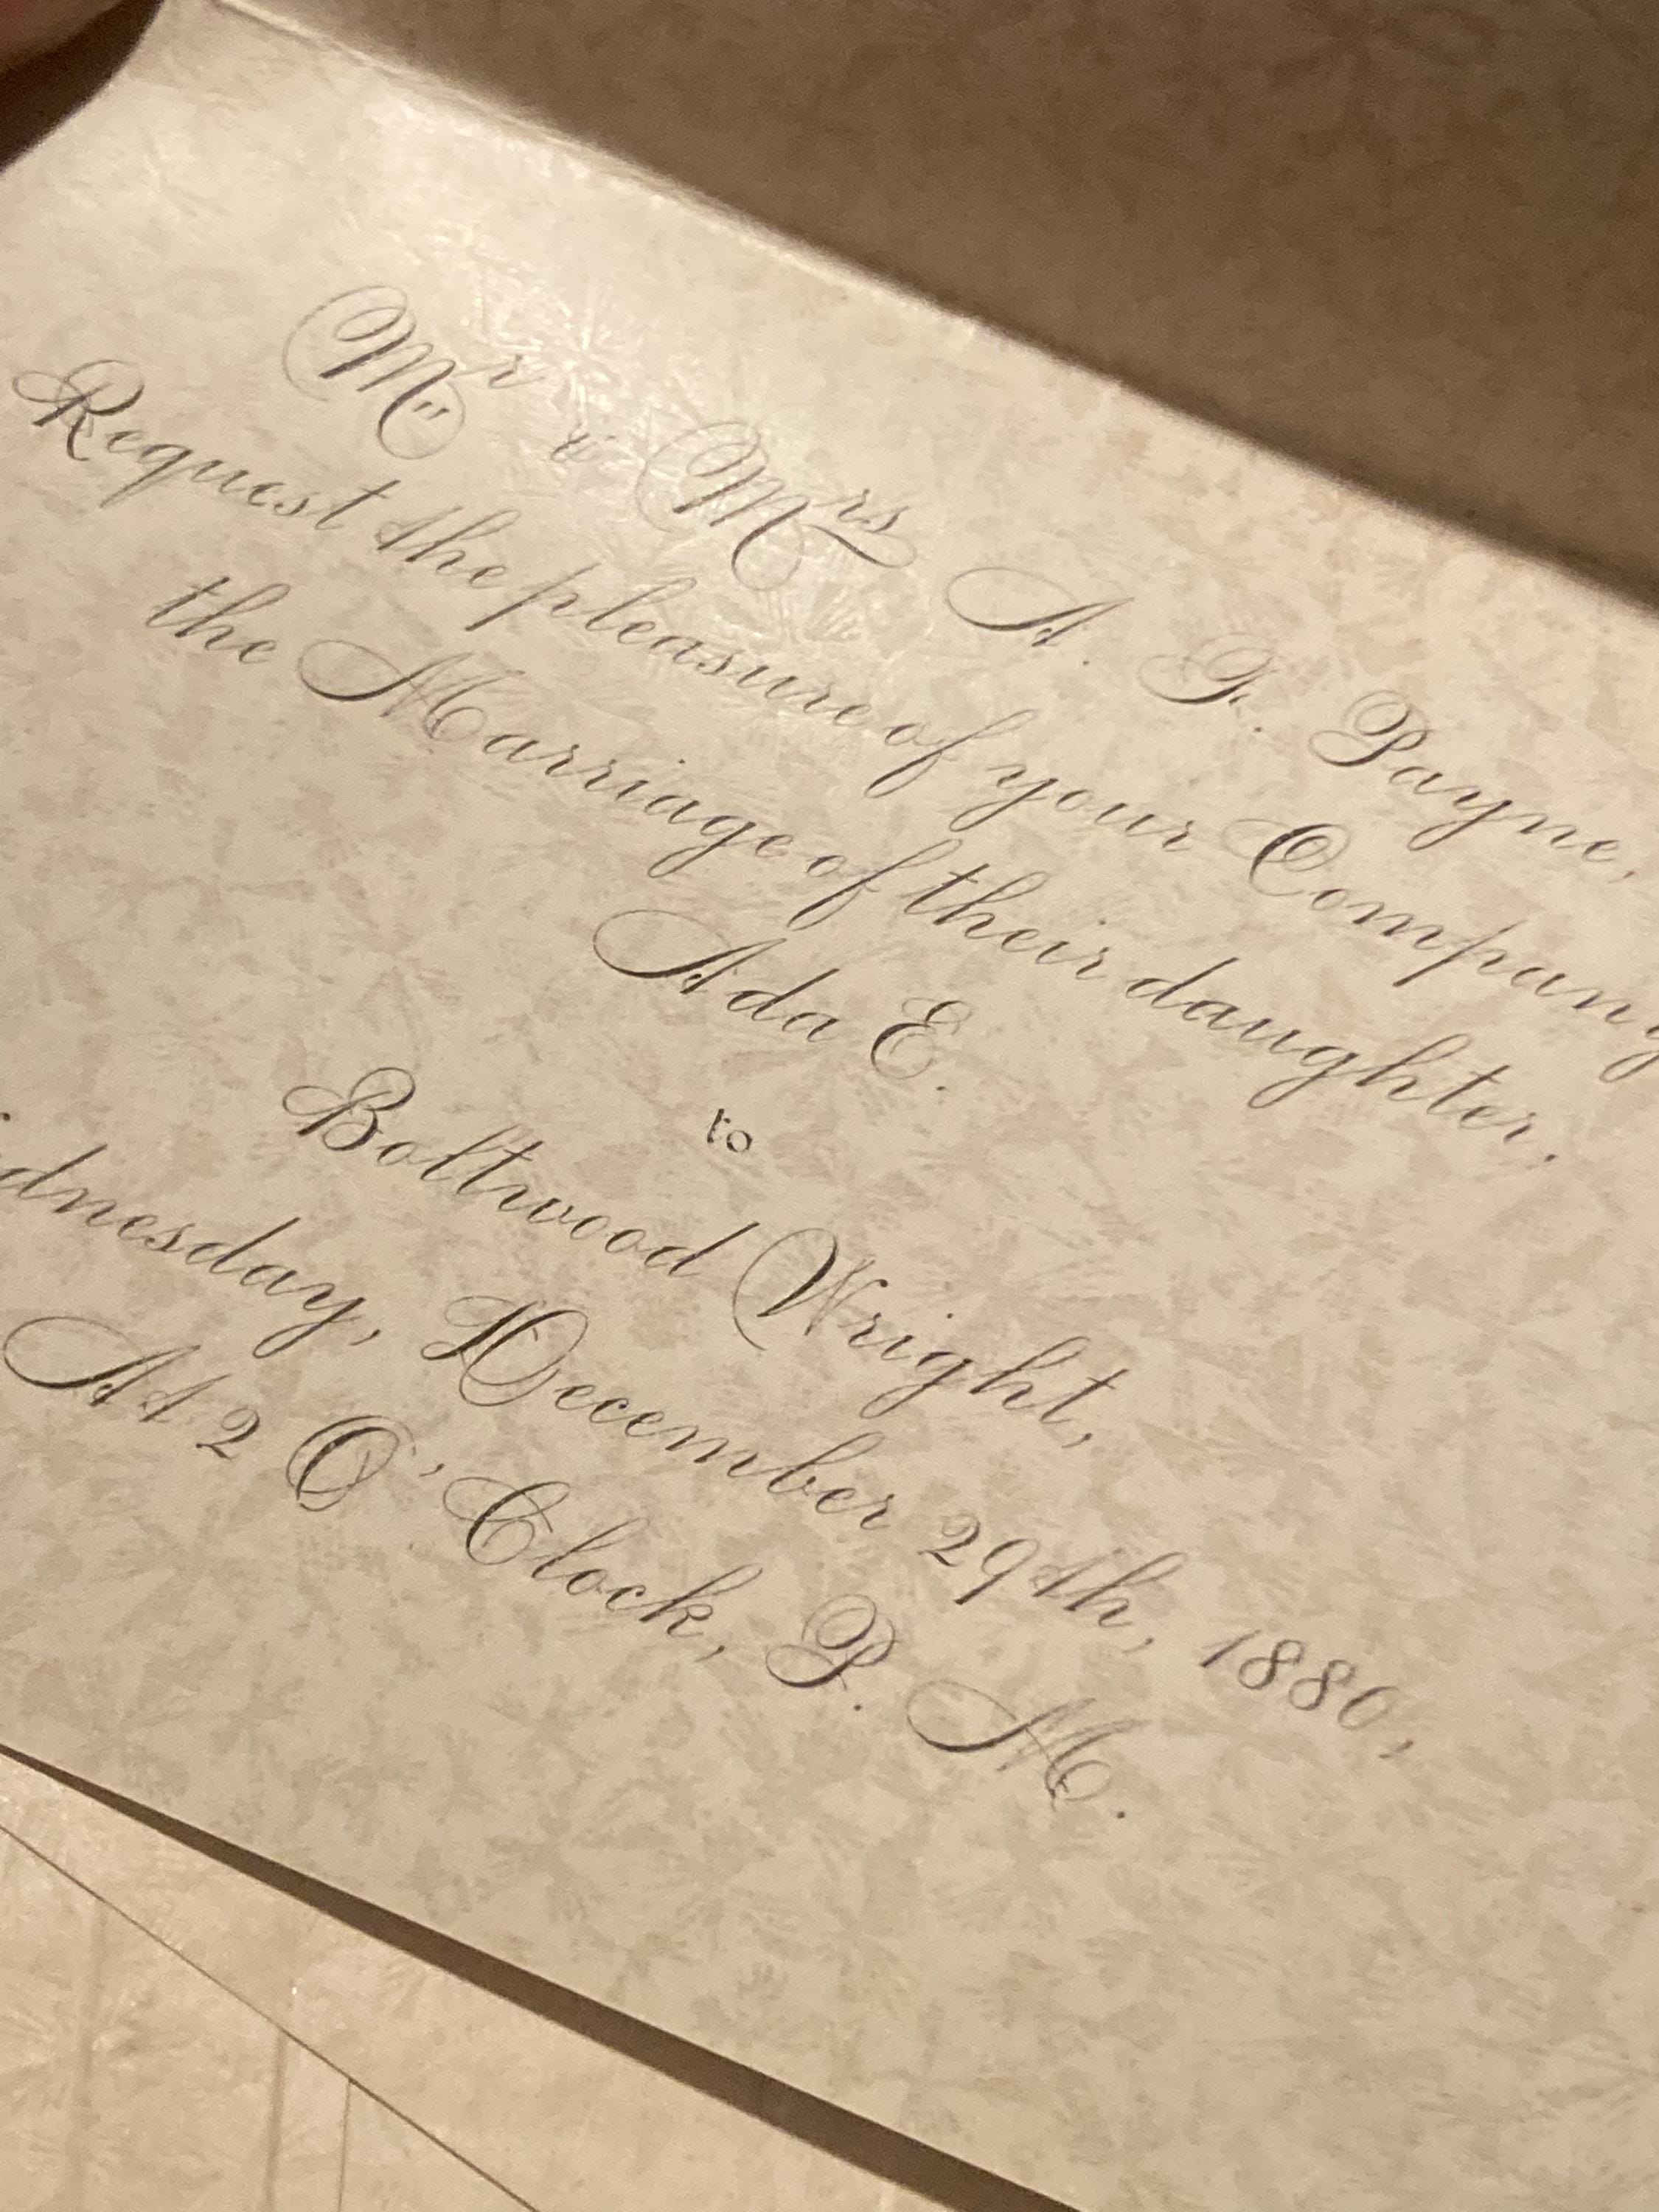 Mr & Mrs A. F. Payne,
Request the pleasure of your Company
the Marriage of their daughter.
Ada E.
to
Boltwood Wright,
dnesday, December 29th, 1880,
At 2 O'Clock, P. M.